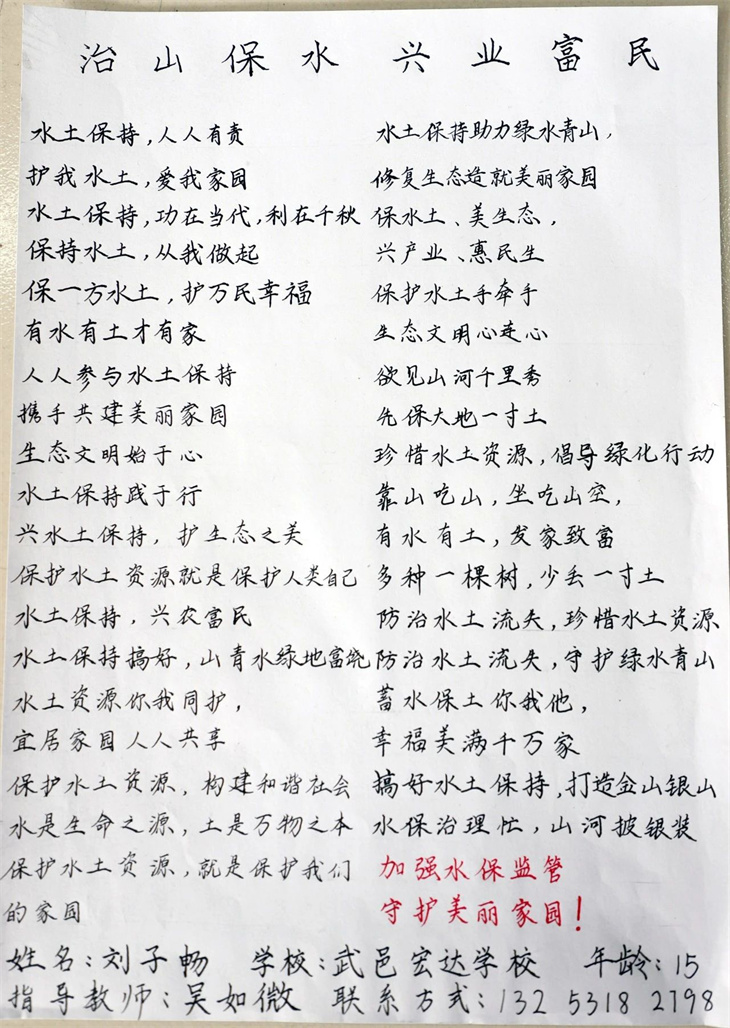 治山保水 兴业富民
水土保持,人人有责
护我水土,爱我家园
水土保持,功在当代,利在千秋
保持水土,从我做起
保一方水土,护万民幸福
有水有土才有家
人人参与水土保持
携手共建美丽家园
生态文明始于心
水土保持践于行
兴水土保持,护生态之美
保护水土资源就是保护人类自己
水土保持,兴农富民
水土保持搞好,山青水绿地富饶
水土资源你我同护,
宜居家园人人共享
保护水土资源,构建和谐社会
水是生命之源,土是万物之本
保护水土资源,就是保护我们
的家园
水土保持助力绿水青山,
修复生态造就美丽家园
保水土、美生态,
兴产业、惠民生
保护水土手牵手
生态文明心连心
欲见山河千里秀
先保大地一寸土
珍惜水土资源,倡导绿化行动
靠山吃山,坐吃山空,
有水有土,发家致富
多种一棵树,少丢一寸土
防治水土流失,珍惜水土资源
防治水土流失,守护绿水青山
蓄水保土你我他,
幸福美满千万家
搞好水土保持,打造金山银山
水保治理忙,山河披银装
加强水保监管
守护美丽家园!
姓名:刘子畅 学校:武邑宏达学校 年龄:15
指导教师:吴如微 联系方式:132 5318 2798